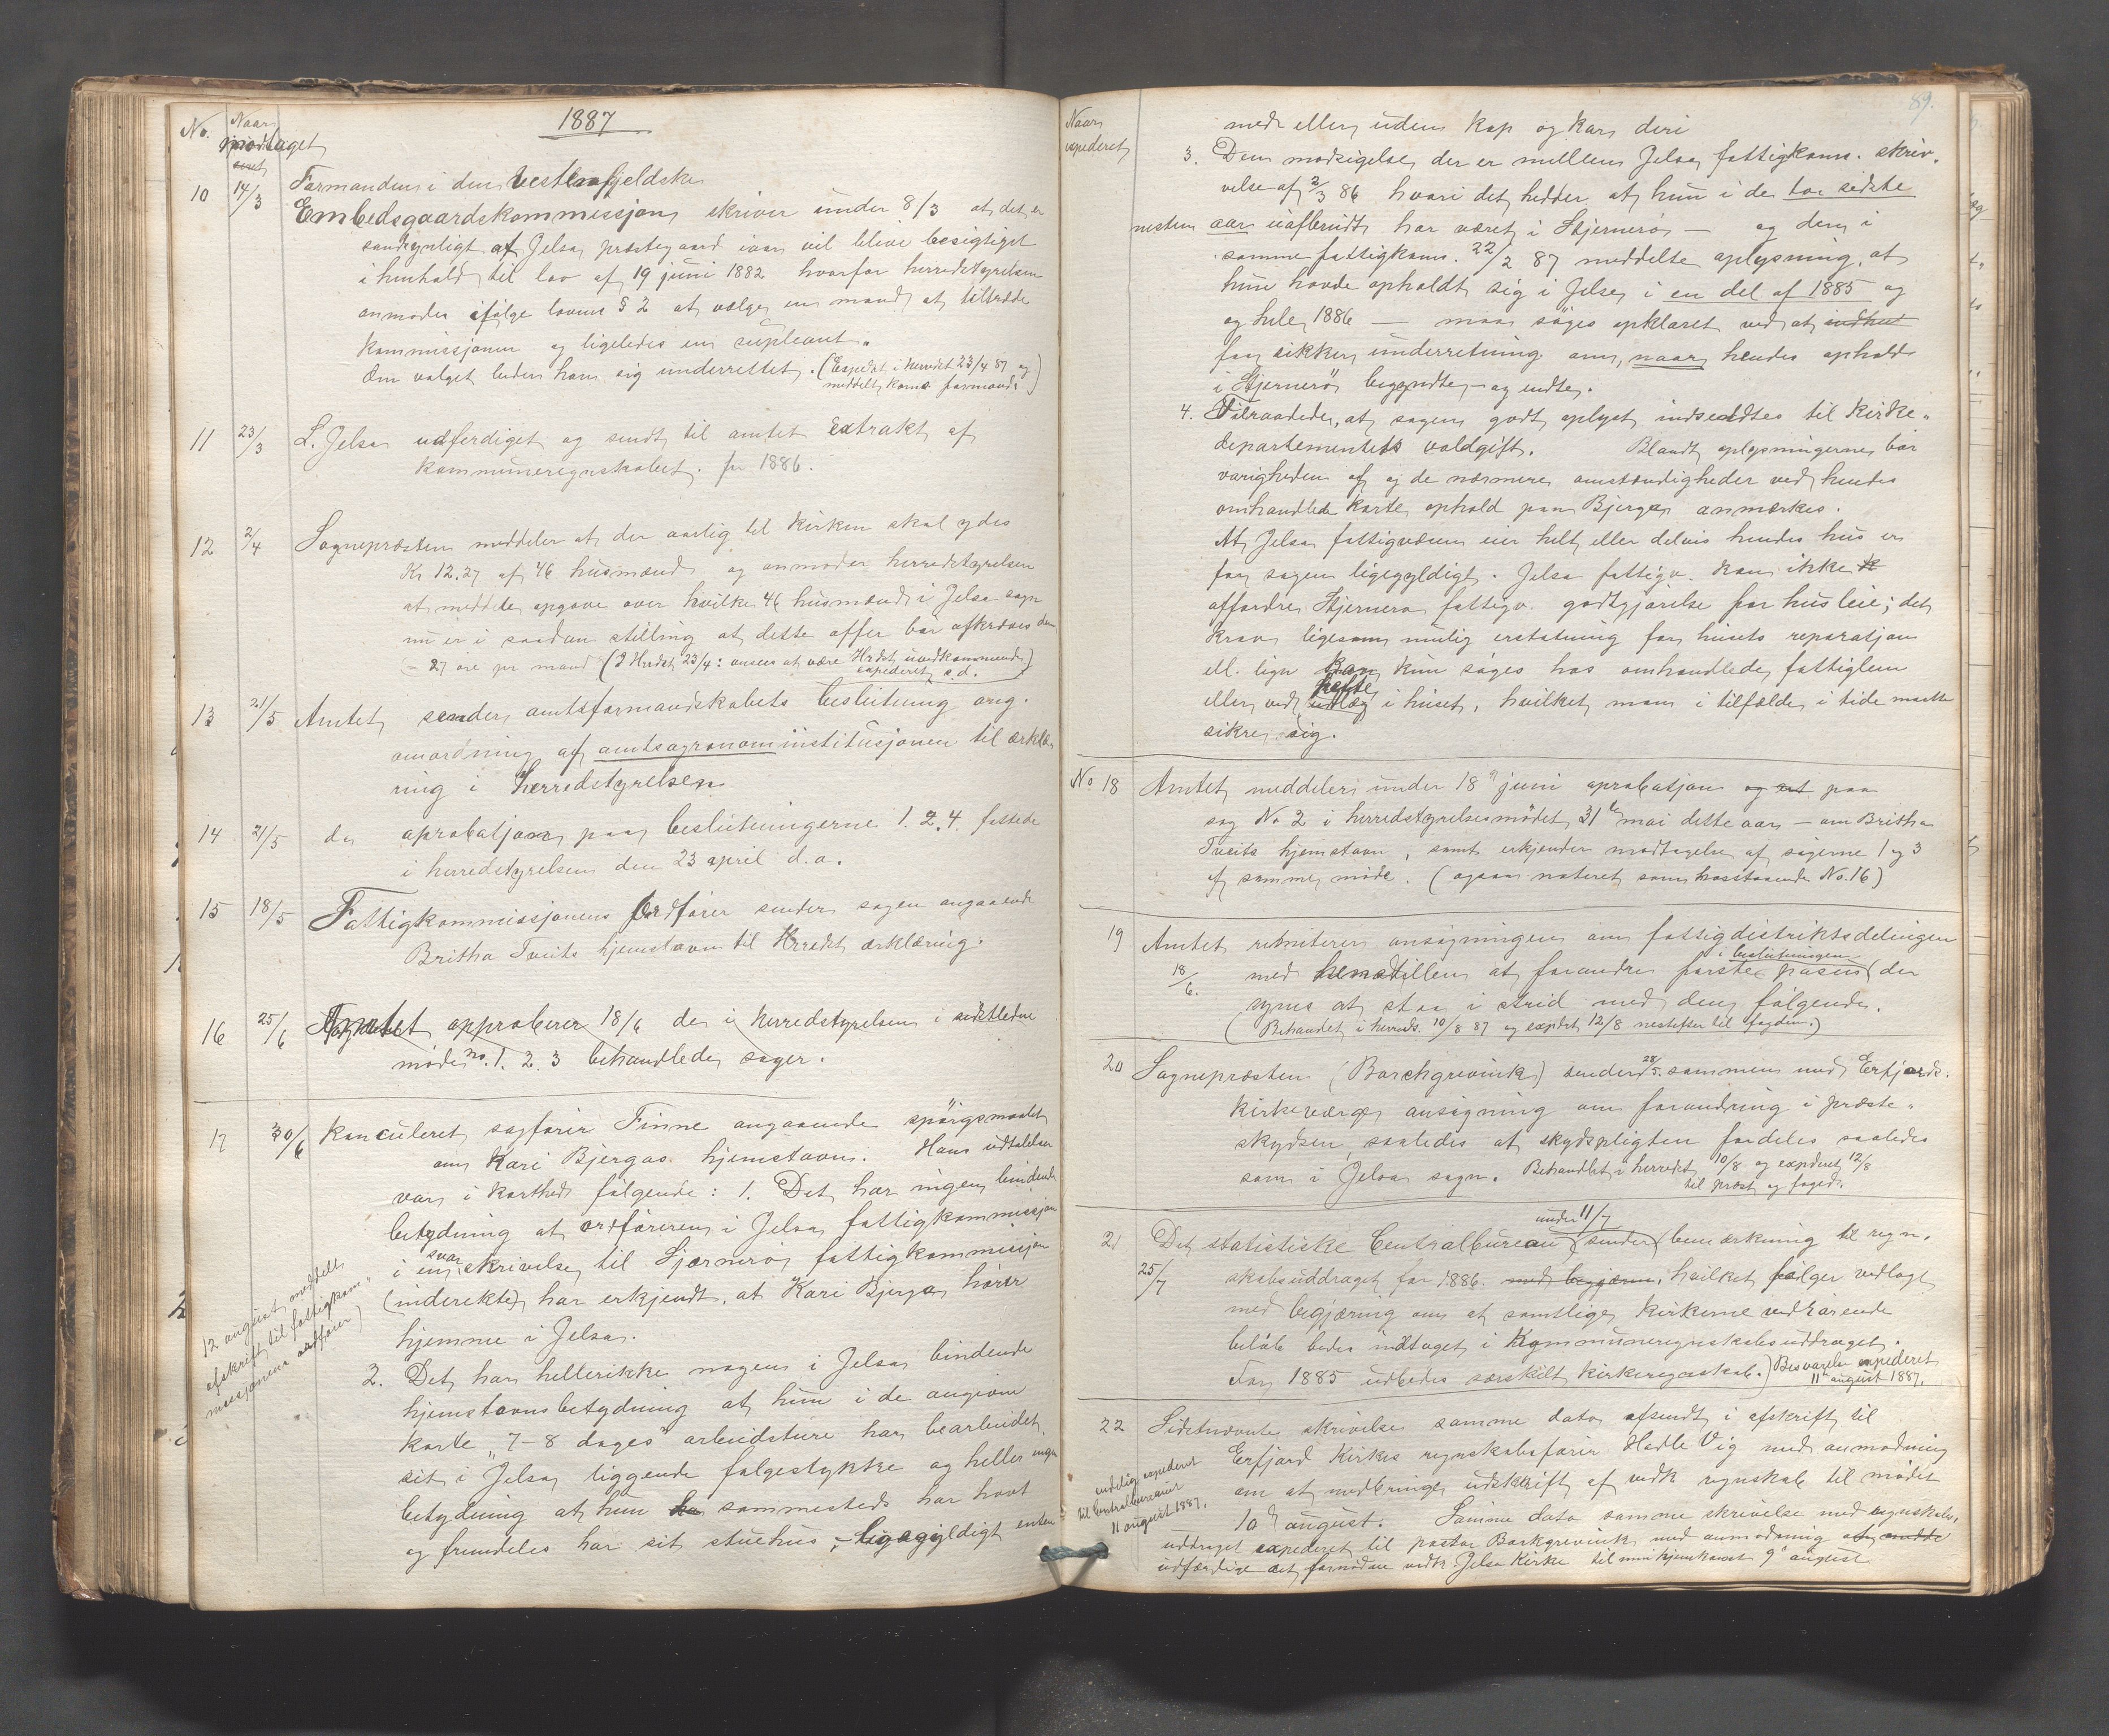 1887
No. Naar modtaget
10 14/3 Formanden i den Vestenfjeldske
Embedsgaardskommissjon skriver under 8/3 at det er
sandsynligt at Jelsa prestegaard iaar vil blive besigtiget
i henhold til lov af 19 juni 1882 hvorfor herredstyrelsen
anmodes ifølge lovens § 2 at vælge en mand at tiltræde
kommissjonen og ligeledes en supleant.
Om valget beder han sig underrettet. (Expedet i herredet 23/4 87 og
meddelt, koms formand.)
11 23/3 L. Jelsa udferdiget og sendt til amtet Extrakt af
kommuneregnskabet. for 1886.
12 2/4 Sognepræsten meddeler at der aarlig til Kirken skal ydes
Kr 12.27 af 46 husmænd og anmoder herredstyrelsen
at meddele opgave over hvilke 46 husmænd i Jelsa sogn
nu er i saadan stilling at dette offer bør afkræves dem
= 27 øre pr mand (I Herdet 23/4: ansees at være Hrdet uvedkommende)
expederet s.d.
13 21/5 Amtet sender amtsformandskabets beslutning ang.
omordning af amtsagronominstitusjonen til ærklæ-
ring i Herredstyrelsen
14 21/5 do aprobatjon paa beslutningerne 1. 2. 4. fattede
i herredstyrelsen den 23 april d.a.
15 18/5 Fattigkommissjonens Ordfører sender sagen angaaende
Britha Tveits hjemstavn til Hrredet ærklæring.
16 25/6 Amtet approberer 18/6 de i herredstyrelsen i sidstledne
møde No. 1. 2. 3 behandlede sager.
17 30/6 Konculeret sagfører Finne angaaende spörgsmaalet
om Kari Bjergas hjemstavn. Hans udtalelser
var i korthed følgende: 1. Det har ingen bindende
betydning at ordføreren i Jelsa fattigkommissjon
i en svarskrivelse til Sjærnerø fattigkommissjon
(inderekte) har erkjendt, at Kari Bjerga hører
hjemme i Jelsa.
12 august meddelt
afskrift til fattigkom-
missjonens ordfører)
2. Det har hellerikke nogen i Jelsa bindende
hjemstavnsbetydning at hun i de angivne
korte "7-8 dages" arbeidsture har bearbeidet
sit i Jelsa liggende følgestykke og heller ingen
betydning at hun ha sammesteds har havt
og fremdeles har sit stuehus, - ligegyldigt enten
Naar expederet
89.
med eller uden Kop og Kar deri
3. Den modsigelse der er mellem Jelsa fattigkoms. skriv-
velse af 2/3 86 hvori det hedder at hun i de to sidste
nesten aar uafbrudt har været i Stjernerø — og den i
samme fattigkoms. 22/2 87 meddelte oplysning, at
hun havde opholdt sig i Jelsa i en del af 1885 og
og hele 1886 — maa søges opklaret ved at indhen
faa sikker underretning om, naar hendes ophold
i Stjernerø begyndte og endte.
4. Tilraadede, at sagen godt oplyst indsendtes til Kirke-
departementets voldgift. Blandt oplysningerne bør
varigheden af og de nærmere omstændigheder ved hendes
omhandlede korte ophold paa Bjerga anmærkes.
At Jelsa fattigvæsen eier helt eller delvis hendes hus er
for sagen ligegyldigt. Jelsa fattigv. kan ikke k
affordre Stjernerø fattigv. godtgjørelse for husleie; det
Krav ligesom mulig erstatning for husets reparatjon
el. lign kan kun søges hos omhandlede fattiglem
eller ved hefte udlæg i huset, hvilket man i tilfælde i tide maatte
sikre sig.
No 18 Amtet meddeler under 18 juni aprobatjon og at paa
sag No 2 i herredstyrelsesmødet 31te mai dette aar — om Britha
Tveits hjemstavn, samt erkjender modtagelse af sagerne 1 og 3
af samme møde. (ogsaa noteret som hosstaaende No. 16)
19 Amtet remiterer ansøgningen om fattigdistriktsdelingen
18/6. med henstillen at forandre første pasus i beslutningen der
synes at staa i strid med den følgende.
(Behandlet i herreds. 10/8 87 og expdet 12/8 nestefter til fogden.)
20 Sognepræsten (Borchgrevink) sender 28/5. sammen med Erfjords-
kirkeværge ansøgning om forandring i præste-
skydsen saaledes at skydspligten fordeles saaledes
som i Jelsa sogn. Behandlet i herredet 10/8 og expderet 12/8
til præst og foged.
21 Det statistiske Centralbureau sender under 11/7 bemærkning til regn-
25/7 skabsuddraget for 1886. med begjæren, hvilket følger vedlagt
med begjæring om at samtlige kirkerne vedkörende
beløb bedes indtaget i Kommuneregnskabsuddraget.
For 1885 udbedes særskilt kirkeregnskab.) Besvarelse expederet
11te august 1887.
22 Sidstnævnte skrivelse samme dato afsendt i afskrift til
Erfjord Kirkes regnskabsfører Hadle Vig med anmodning
endelig expederet
til Centralbureauet
11 august 1887.
om at medbringe udskrift af vedk regnskab til mødet
10 august. Samme dato samme skrivelse med regnskabs-
uddraget expederet til pastor Borkgrevink med anmodning at
udfærdige det fornødne vedk Jelsa Kirke til min hjemkomst 9 august